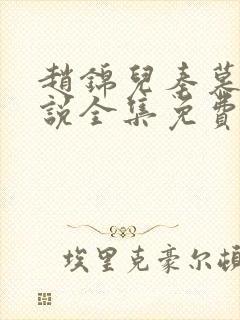 趙錦兒秦慕
說全集免費
埃里克豪尔頓